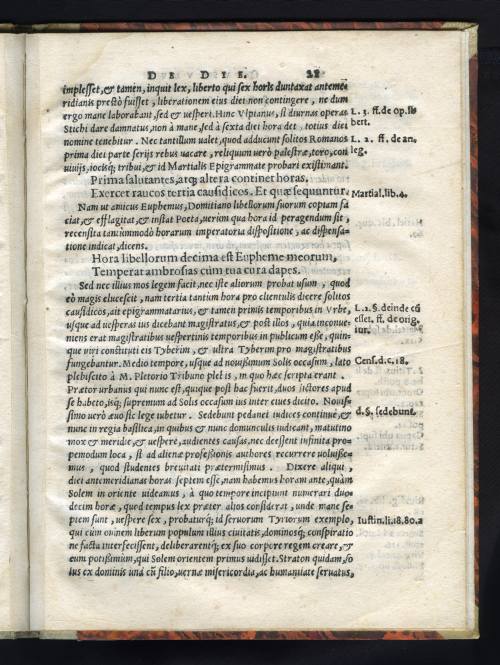 DE DIE. 28
implesset, & tamen, inquit lex, liberto qui sex horis duntaxat anteme
ridianis prestò fuisset, liberationem eius diei non contingere, ne dum
ergo mane laborabant, sed & uesperi. Hinc Vlpianus, si diurnas operas
L. 3. ff. de op. li
bert.
Stichi dare damnatus, non à mane, sed à sexta diei hora det, totius diei
nomine tenebitur. Nec tantillum ualet, quod adducunt solitos Romanos
L. 2. ff. de an.
leg.
prima diei parte serijs rebus uacare, reliquum uerò palestræ, toro, con
uiuijs, iocisq; tribui, & id Martialis Epigrammate probari existimant.
Prima salutantes, atq; altera continet horas.
Exercet raucos tertia causidicos. Et quæ sequuntur.
Martial. lib. 4.
Nam ut amicus Euphemus, Domitiano libellorum suorum coptam fa
ciat, & efflagitat, & instat Poeta, uerùm qua hora id peragendum sit,
recensita tantùmmodò horarum imperatoria dispositione, ac dispensa-
tione indicat, dicens.
Hora libellorum decima est Eupheme meorum,
Temperat ambrosias cùm tua cura dapes.
Sed nec illius mos legem facit, nec iste aliorum probat usum, quod
eò magis elucescit, nam tertia tantùm hora pro clientulis dicere solitos
causidicos, ait epigrammatarius, & tamen primis temporibus in Vrbe,
L. 2. §. deinde cũ
esset. ff. de orig.
iur.
usque ad uesperas ius dicebant magistratus, & post illos, quia inconue-
niens erat magistratibus uespertinis temporibus in publicum esse, quin-
que uiri constituti cis Tyberim, & ultra Tyberim pro magistratibus
fungebantur. Medio tempore, usque ad nouissimum Solis occasum, lato
Cens. d. c. 18.
plebiscito à M. Pletorio Tribuno pleb is, in quo hæc scripta erant.
Prætor urbanus qui nunc est, quique post hac fuerit, duos lictores apud
se habeto, isq; supremum ad Solis occasum ius inter ciues dicito. Nouis-
simo uerò æuo sic lege iubetur. Sedebunt pedanei iudices continuè, &
d. §. sedebunt.
nunc in regia basilica, in quibus & nunc domunculis iudicant, matutino
mox & meridie, & uesperè, audientes causas, nec deessent infinita pro-
pemodum loca, si ad alienæ professionis authores recurrere uoluisse-
mus, quod studentes breuitati prætermisimus. Dixere aliqui,
diei antemeridianas horas septem esse, nam habemus horam ante, quàm
Solem in oriente uideamus, à quo tempore incipiunt numerari duo-
decim horæ, quod tempus lex præter alios considerat, unde mane se-
ptem sunt, uespere sex, probaturq; id seruorum Tyriorum exemplo,
Iustin. li. 18. 80. 2
qui cùm omnem liberum populum illius ciuitatis, dominosq; conspiratio
ne facta interfecissent, deliberarentq; ex suo corpore regem creare, &
eum potissimùm, qui Solem orientem primus uidisset. Straton quidam, so
lus ex dominis unà cũ filio, uernæ misericordia, ac humanitate seruatus,